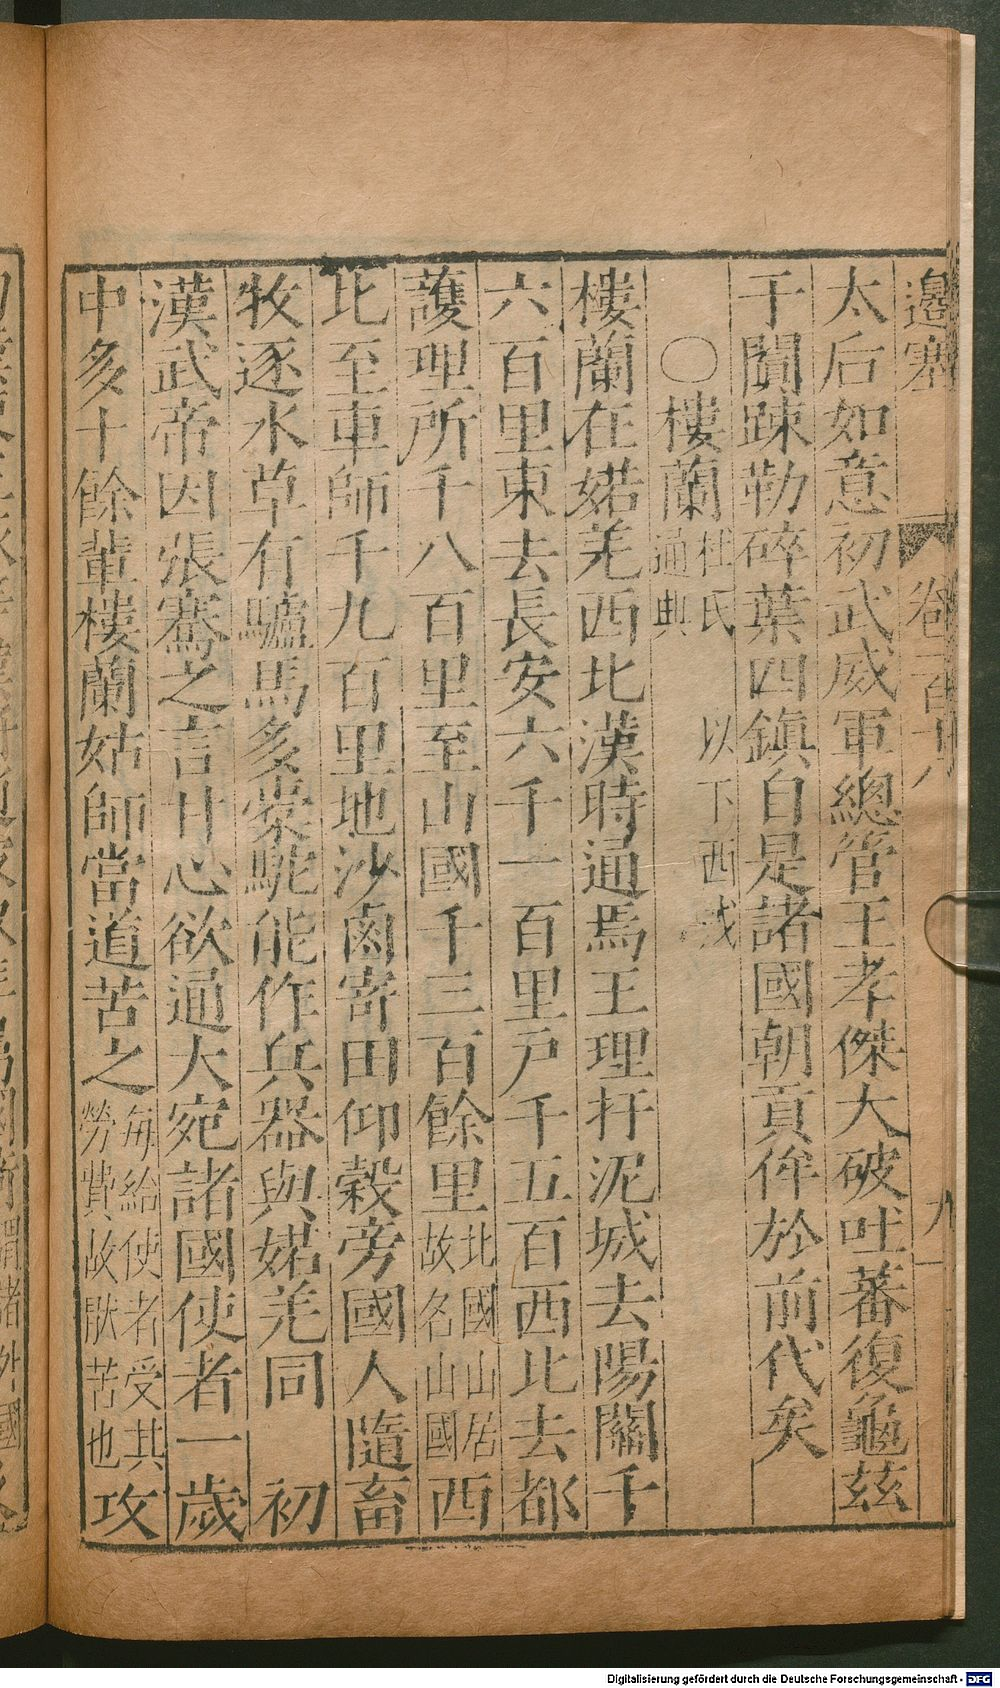 邊塞 卷一百十八 九
太后如意初武威軍總管王孝傑大破吐蕃復龜茲
于闐踈勒碎葉四鎮自是諸國朝貢侔於前代矣
〇樓蘭 杜氏通典 以下西戎
樓蘭在婼羌西北漢時通焉王理扜泥城去陽關千
六百里東去長安六千一百里戸千五百西北去都
護理所千八百里至山國千三百餘里 北國山居故名山國 西
北至車師千九百里地沙鹵寄田仰穀旁國人隨畜
牧逐水草有驢馬多橐駝能作兵器與婼羌同 初
漢武帝因張騫之言甘心欲通大宛諸國使者一歲
中多十餘輩樓蘭姑師當道苦之 每給使者受其勞費故厭苦也 攻
Digitalisierung gefördert durch die Deutsche Forschungsgemeinschaft - DFG